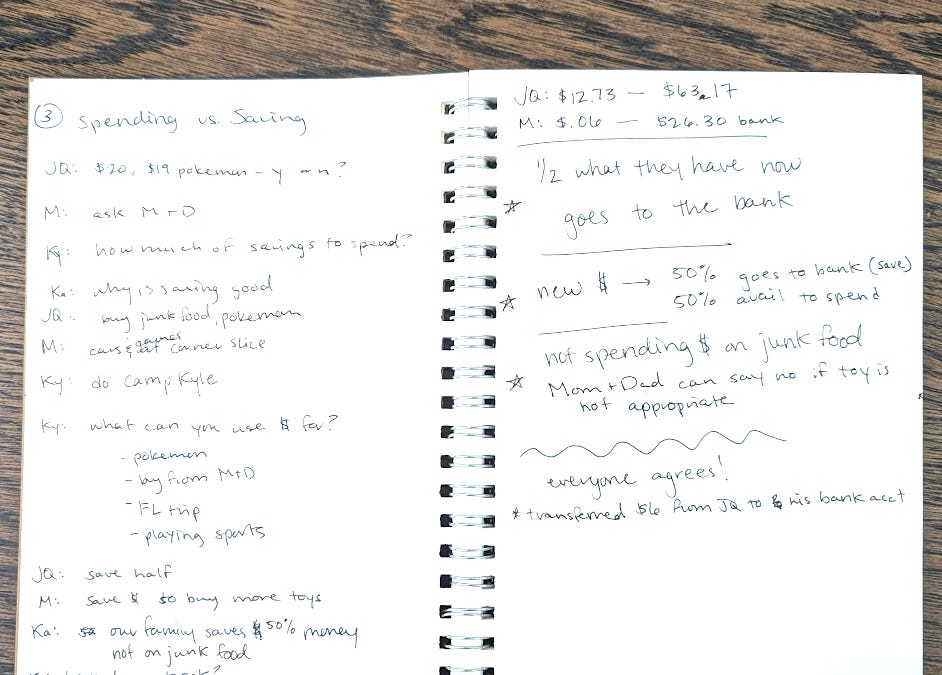 ③ Spending vs. Saving
JQ: $20, $19 pokemon - y or n?
M: ask M + D
Ky: how much of savings to spend?
Ka: why is saving good
JQ: buy junk food, pokemon
M: cars & games eat corner slice
Ky: do Camp Kyle
Ky: what can you use $ for?
- pokemon
- buy from M+D
- FL trip
- playing sports
JQ: save half
M: save $ to buy more toys
Ka: our family saves 50% money
not on junk food
JQ: $12.73 — $63.17
M: $.06 — $26.30 bank
1/2 what they have now
☆ goes to the bank
☆ new $ → 50% goes to bank (save)
50% avail to spend
not spending $ on junk food
☆ Mom + Dad can say no if toy is
not appropriate
everyone agrees!
* transferred $6 from JQ to his bank acct